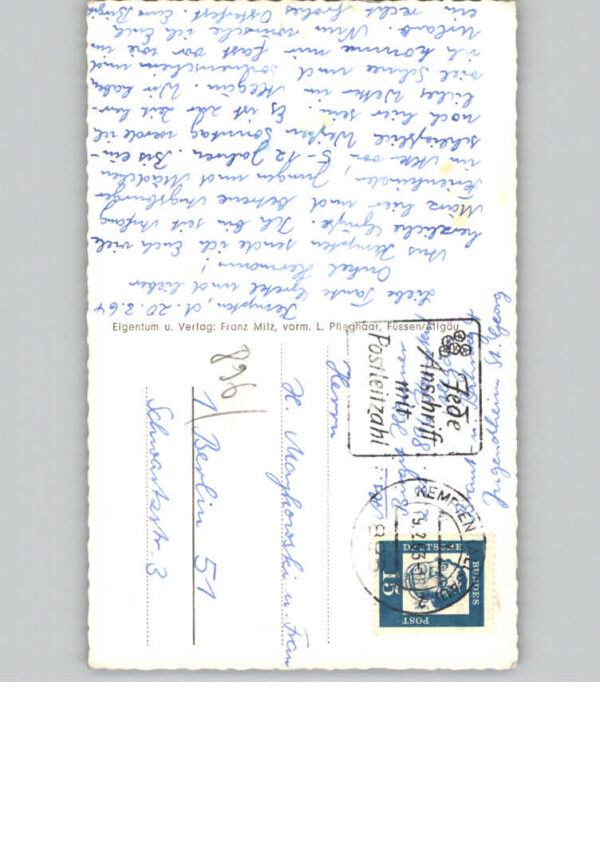 Kempten, d. 20.3.64
Liebe Tante Gretel und lieber
Onkel Hermann!
Aus Kempten sende ich Euch viele
herzliche Grüße. Ich bin seit Anfang
März hier und betreue Augsburger
Ferienkinder, Jungen und Mädchen
im Alter von 5-12 Jahren. Bis ein-
schließlich Weißen Sonntag werde ich
noch hier sein. Es ist zur Zeit herr-
liches Wetter im Allgäu. Wir haben
viel Schnee und Sonnenschein und
ich komme mir fast vor wie im
Urlaub. Nun wünsche ich Euch
ein recht frohes Osterfest. Eure
Eigentum u. Verlag: Franz Milz, vorm. L. Pfleghaar, Füssen/Allgäu
Jugendheim St. Georg
Jede
Anschrift
mit
Postleitzahl
KEMPTEN
DEUTSCHE
BUNDES
POST
15
Herrn
H. u. Frau
1 Berlin 51
Schwartzstr. 3
896